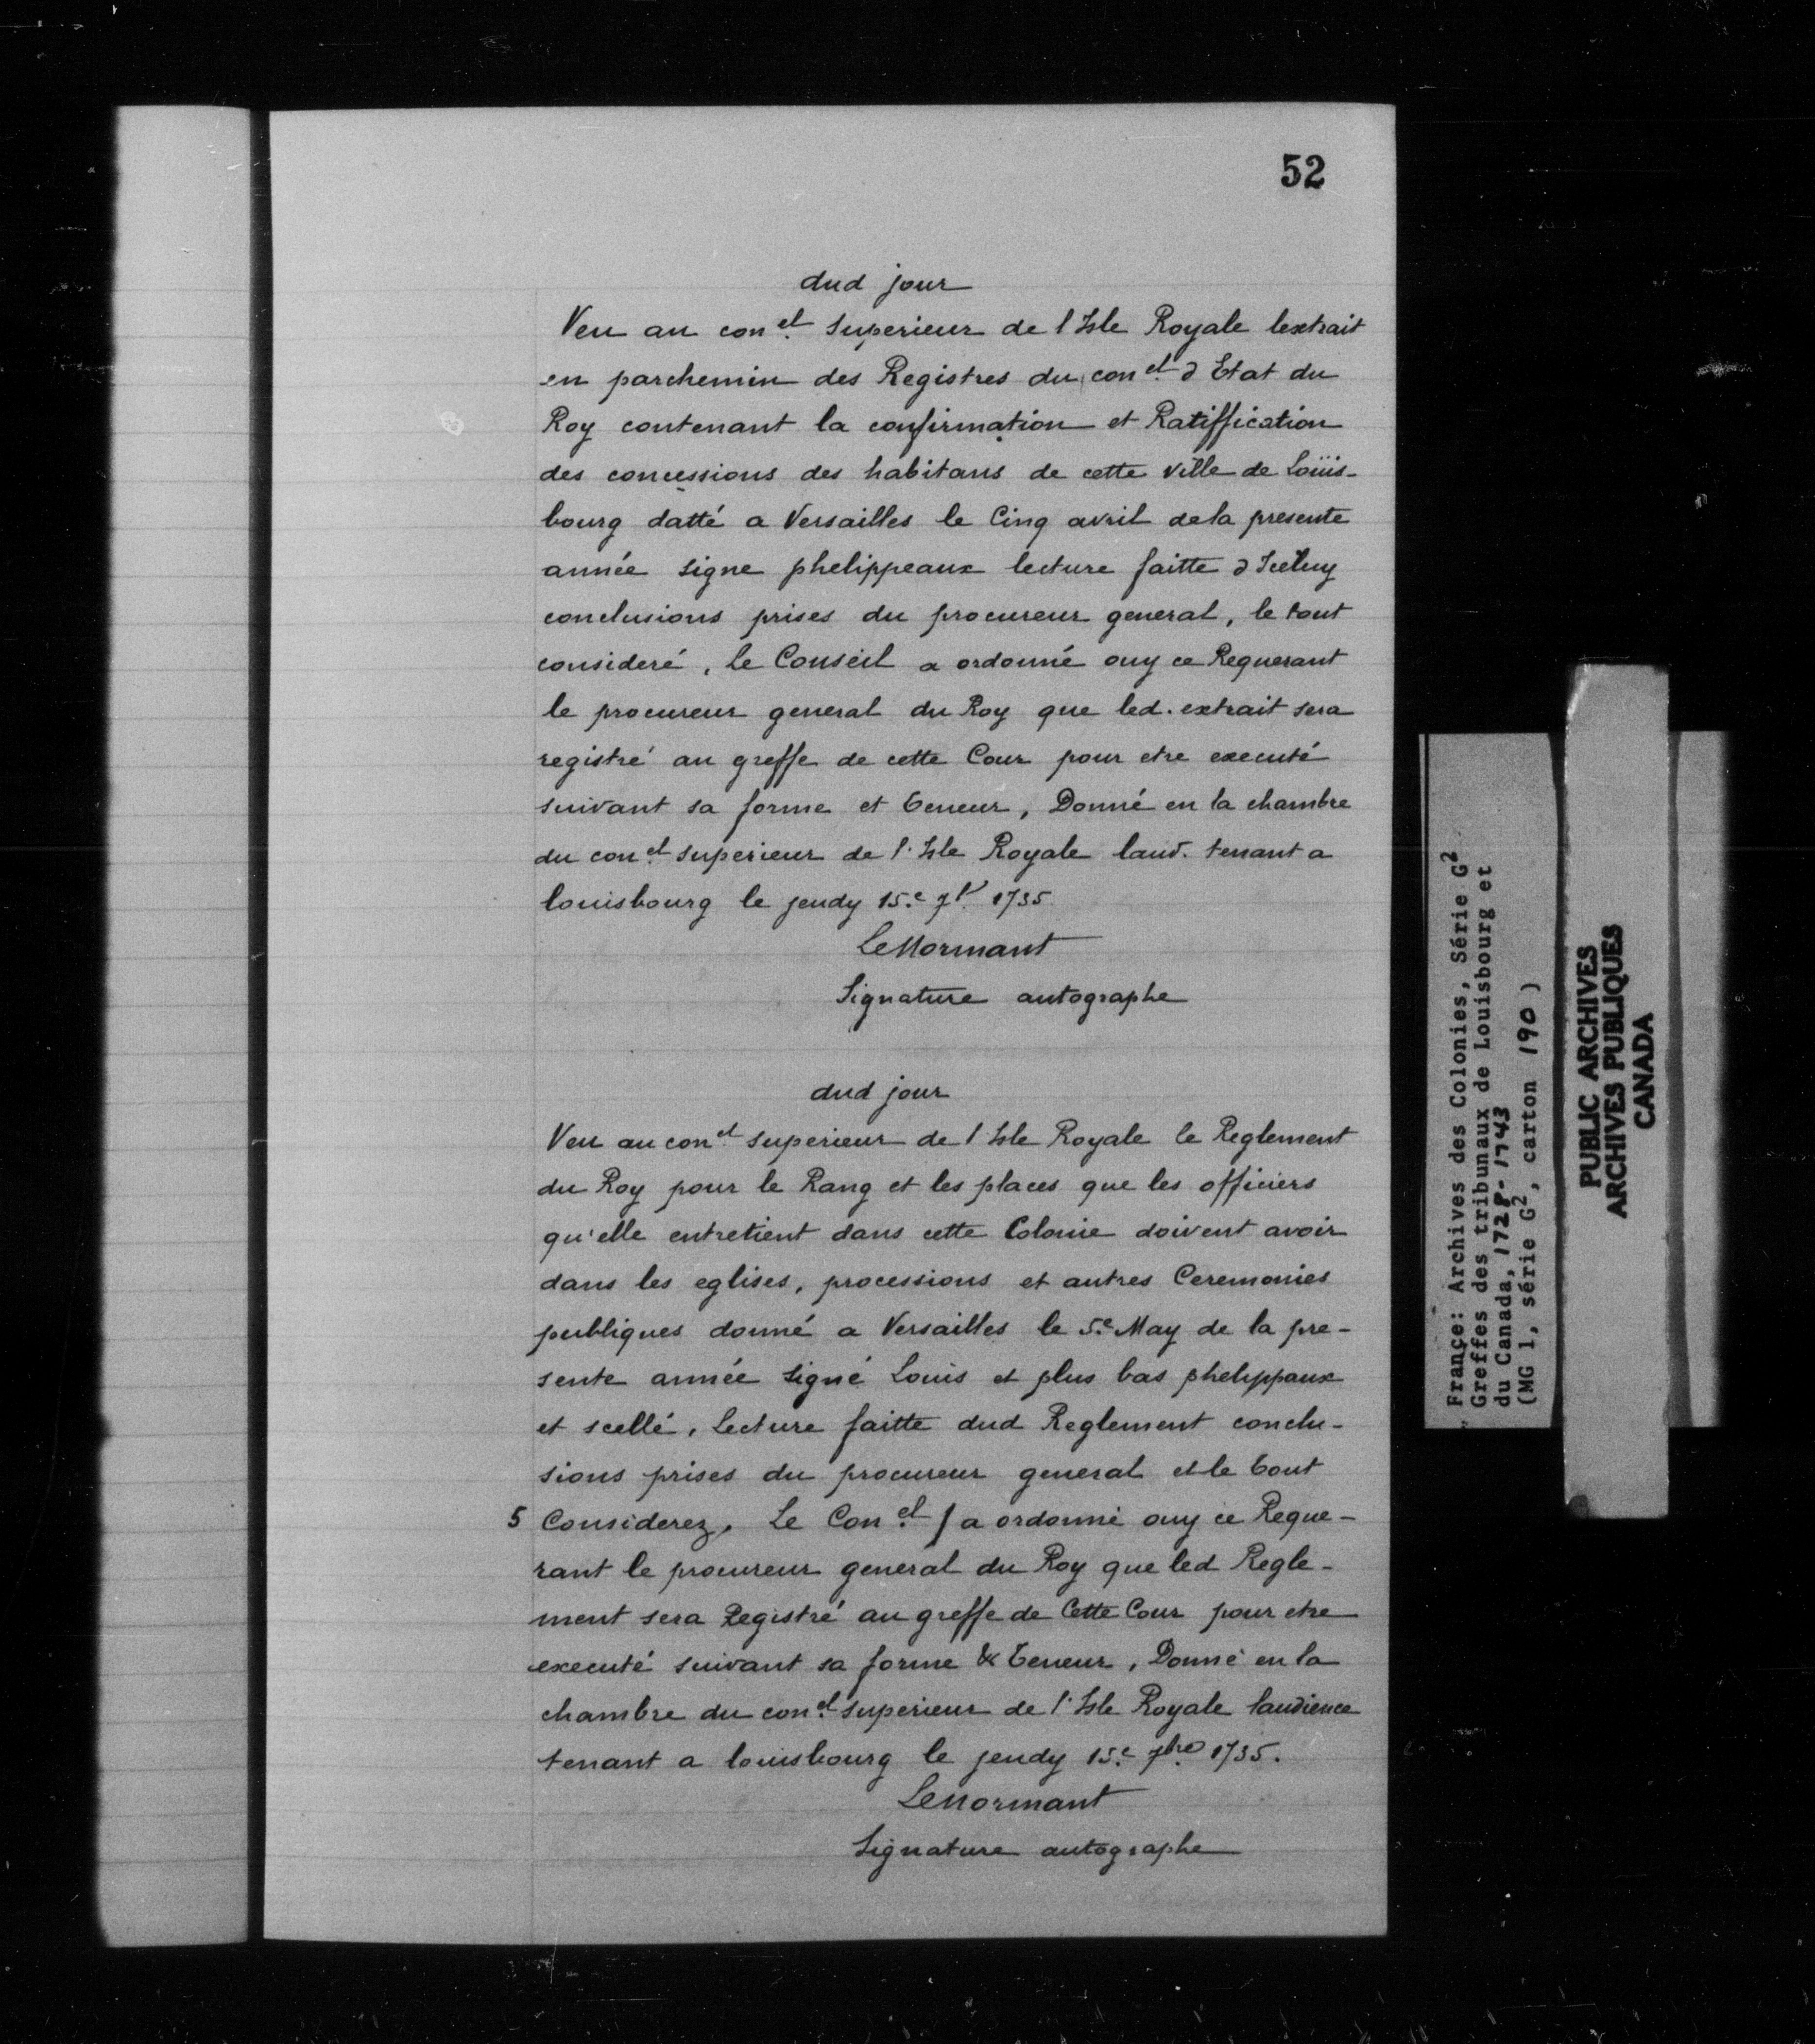 52
dud jour
Veu au con.el Superieur de l Isle Royale lextrait
en parchemin des Registres du con.el d Etat du
Roy contenant la confirmation et Ratiffication
des concessions des habitans de cette ville de Loüis-
bourg datté a Versailles le Cinq avril dela presente
année signe phelippeaux lecture faitte d Iceluy
conclusions prises du procureur general, le tout
consideré, Le Conseil a ordonné ouy ce Requerant
le procureur general du Roy que led. extrait sera
registré au greffe de cette Cour pour etre executé
suivant sa forme et teneur, Donné en la chambre
du con.el superieur de l'Isle Royale laud. tenant a
louisbourg le jeudy 15.e 7.b 1735.
LeNormant
Signature autographe
dud jour
Veu au con.el superieur de l Isle Royale le Reglement
du Roy pour le Rang et les places que les officiers
qu'elle entretient dans cette Colonie doivent avoir
dans les eglises, processions et autres Ceremonies
publiques donné a Versailles le 5.e May de la pre-
sente année signé Louis et plus bas phelippaux
et scellé, Lecture faitte dud Reglement conclu-
sions prises du procureur general et le tout
5 Considerez, Le Con.el / a ordonné ouy ce Reque-
rant le procureur general du Roy que led Regle-
ment sera Registré au greffe de Cette Cour pour etre
executé suivant sa forme & teneur, Donné en la
chambre du con.el superieur de l'Isle Royale laudience
tenant a louisbourg le jeudy 15.e 7.bre 1735.
LeNormant
Signature autographe
France: Archives des Colonies, Série G²
Greffes des tribunaux de Louisbourg et
du Canada, 1728-1743
(MG 1, série G², carton 190)
PUBLIC ARCHIVES
ARCHIVES PUBLIQUES
CANADA